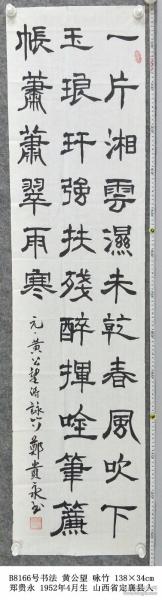 一片湘雲濕未乾春風吹下
玉琅玕強扶殘醉揮吟筆簾
帳蕭蕭翠雨寒
元·黃公望詩詠竹 鄭貴永書
B8166号书法 黄公望 咏竹 138×34cm
郑贵永 1952年4月生 山西省定襄县人